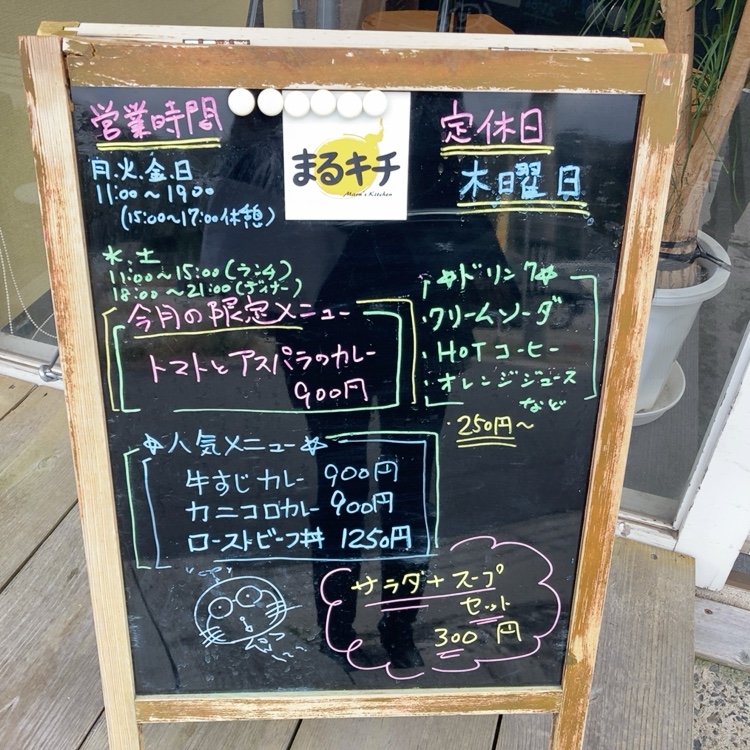 営業時間
月.火.金.日
11:00～19:00
(15:00～17:00休憩)
まるキチ
Maron's Kitchen
定休日
木曜日
水.土
11:00～15:00(ランチ)
18:00～21:00(ディナー)
今月の限定メニュー
トマトとアスパラのカレー
900円
ドリンク
・クリームソーダ
・HOTコーヒー
・オレンジジュース
など
・250円～
人気メニュー
牛すじカレー 900円
カニコロカレー 900円
ローストビーフ丼 1250円
サラダ+スープ
セット
300円